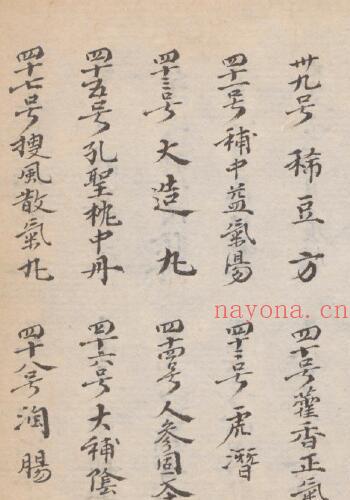 卅九号 稀豆方
四十号 藿香正氣
四十一号 補中益氣湯
四十二号 虎潛
四十三号 大造丸
四十四号 人參固本
四十五号 孔聖枕中丹
四十六号 大補陰
四十七号 搜風散氣丸
四十八号 潤腸
nayona.cn